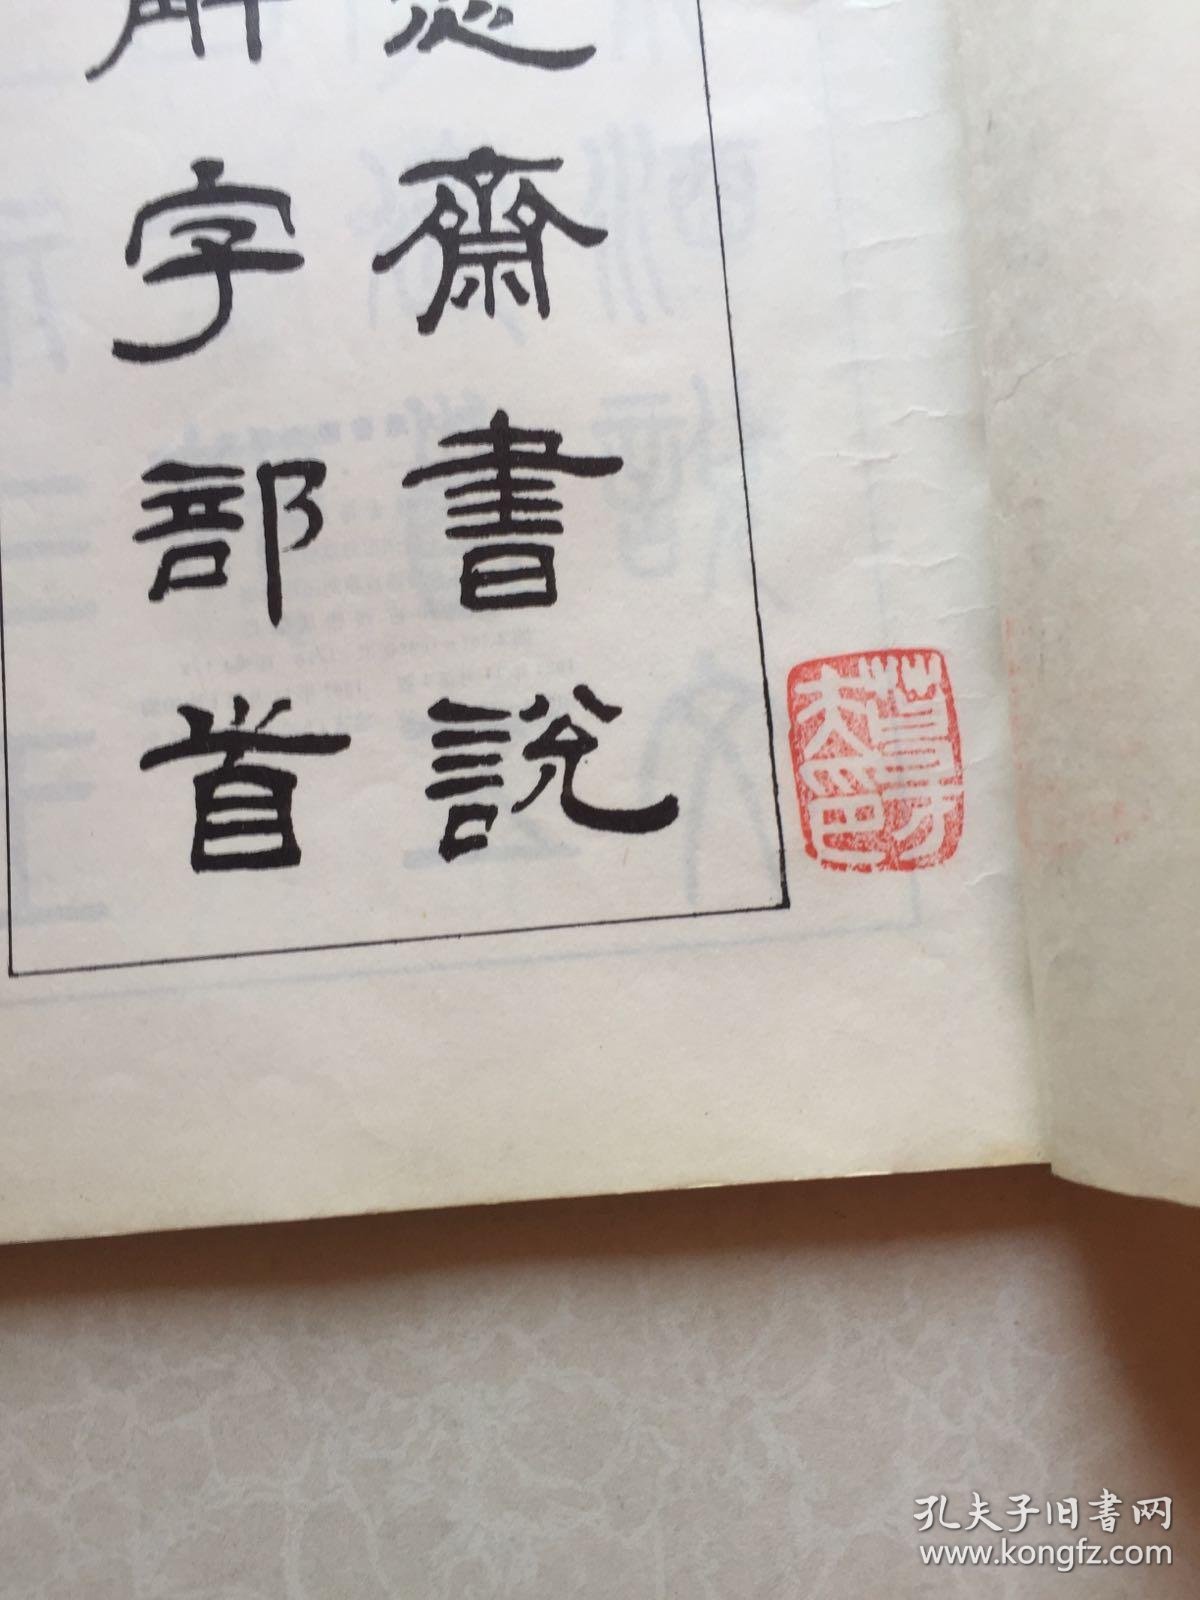 愙齋書說
解字部首
孔夫子旧书网
www.kongfz.com